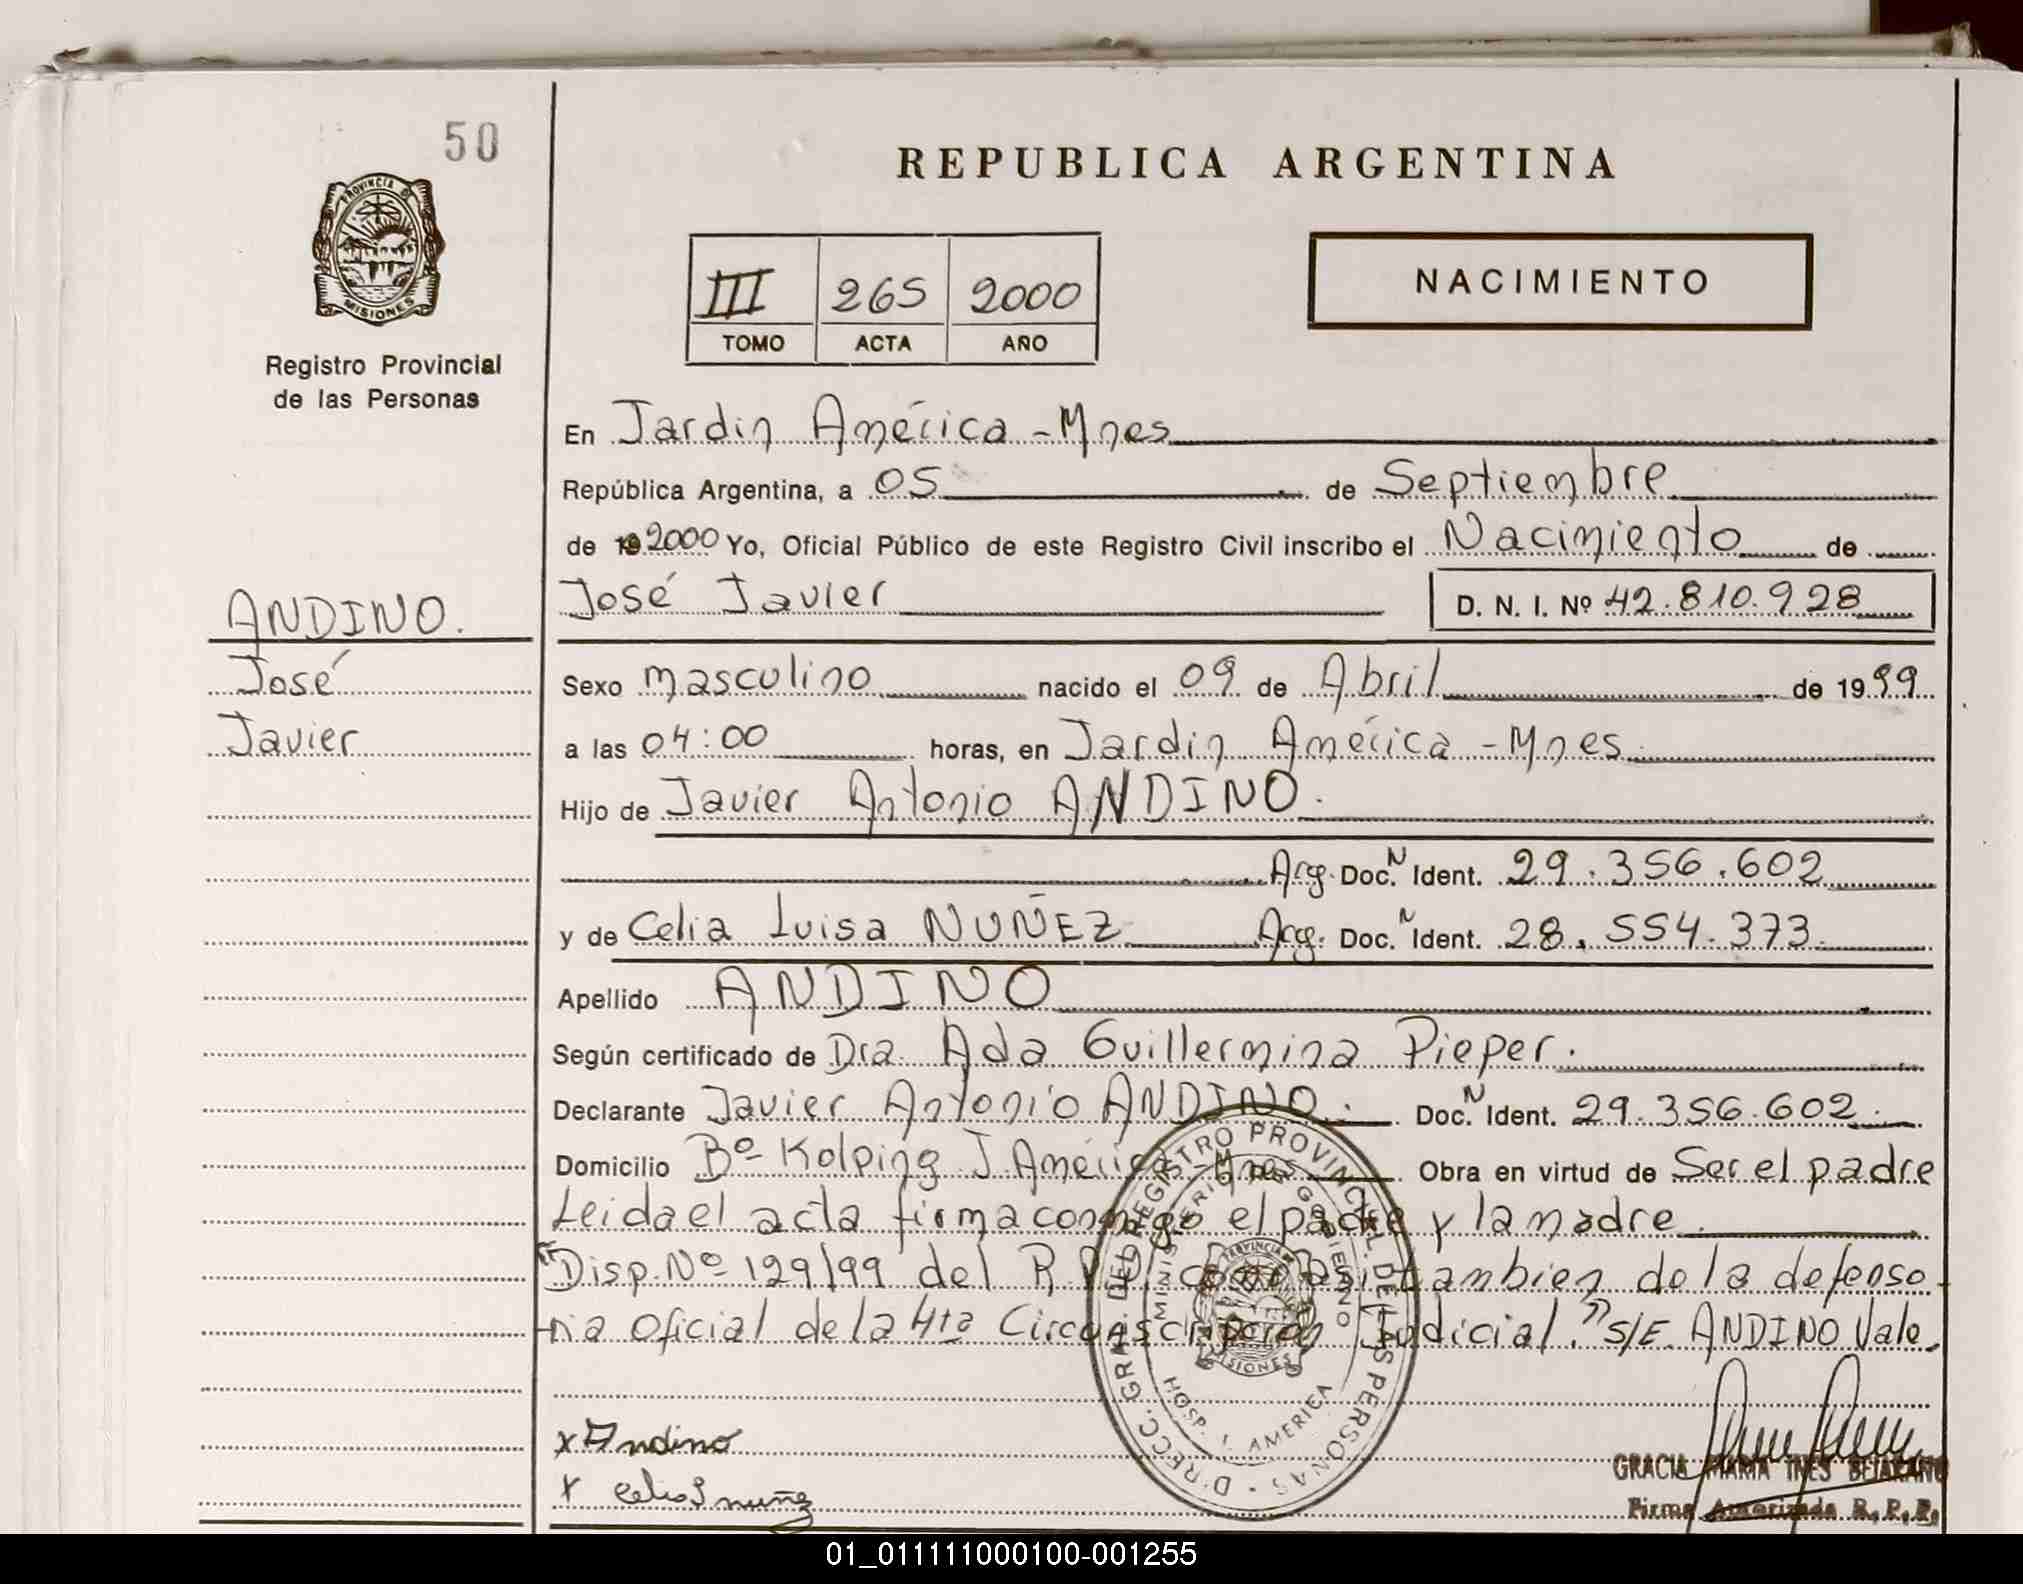 50
REPUBLICA ARGENTINA
PROVINCIA DE
MISIONES
III 265 2000
TOMO ACTA AÑO
NACIMIENTO
Registro Provincial
de las Personas
En Jardin América - Mnes
República Argentina, a 05 de Septiembre
de 19 2000 Yo, Oficial Público de este Registro Civil inscribo el Nacimiento de
ANDINO.
José Javier D. N. I. Nº 42.810.928
José
Sexo masculino nacido el 09 de Abril de 1999
Javier
a las 04:00 horas, en Jardin América - Mnes
Hijo de Javier Antonio ANDINO.
Arg. Doc. N Ident. 29.356.602
y de Celia Luisa NUÑEZ Arg. Doc. N Ident. 28.554.373
Apellido ANDINO
Según certificado de Dra. Ada Guillermina Pieper.
Declarante Javier Antonio ANDINO. Doc. N Ident. 29.356.602.
Domicilio Bº Kolping J. América - Mnes Obra en virtud de Ser el padre
Leida el acta firma conmigo el padre y la madre
"Disp. Nº 129/99 del R.P.P. como asi tambien de la defenso-
ria oficial de la 4ta Circunscripción Judicial." S/E. ANDINO Vale.
DIRECC. GRAL. DEL REGISTRO PROVINCIAL DE LAS PERSONAS
MINISTERIO DE GOBIERNO
PROVINCIA DE
MISIONES
HOSP. J. AMERICA
x Andino
x Celia L nuñez
GRACIA MARIA INES BEJARANO
Firma Autorizada R. P. P.
01_011111000100-001255